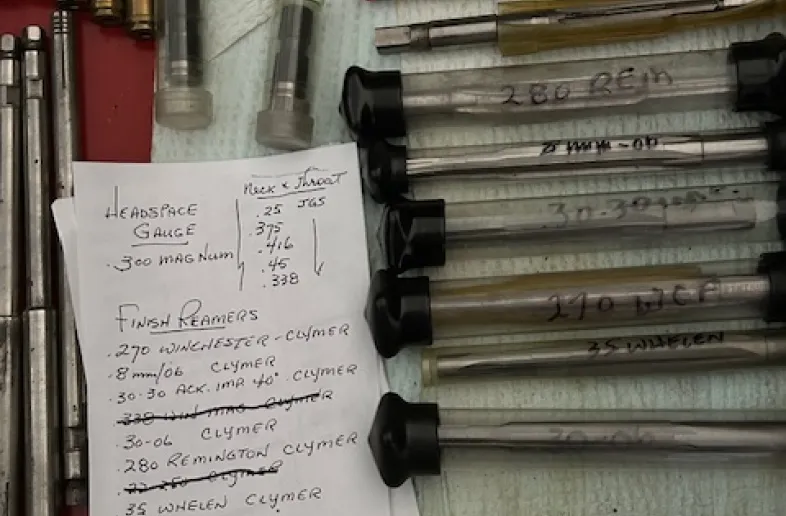 HEADSPACE
GAUGE
.300 MAGNUM
NECK & THROAT
.25 JGS
.375
.416
.45
.338
FINISH REAMERS
.270 WINCHESTER-CLYMER
.8mm/06 CLYMER
.30-30 ACK. IMP 40° CLYMER
338 WIN MAG CLYMER
.30-06 CLYMER
.280 REMINGTON CLYMER
.22-250 CLYMER
35 WHELEN CLYMER
280 REM
8mm-06
30-30
270 WCF
35 WHELEN
30-06